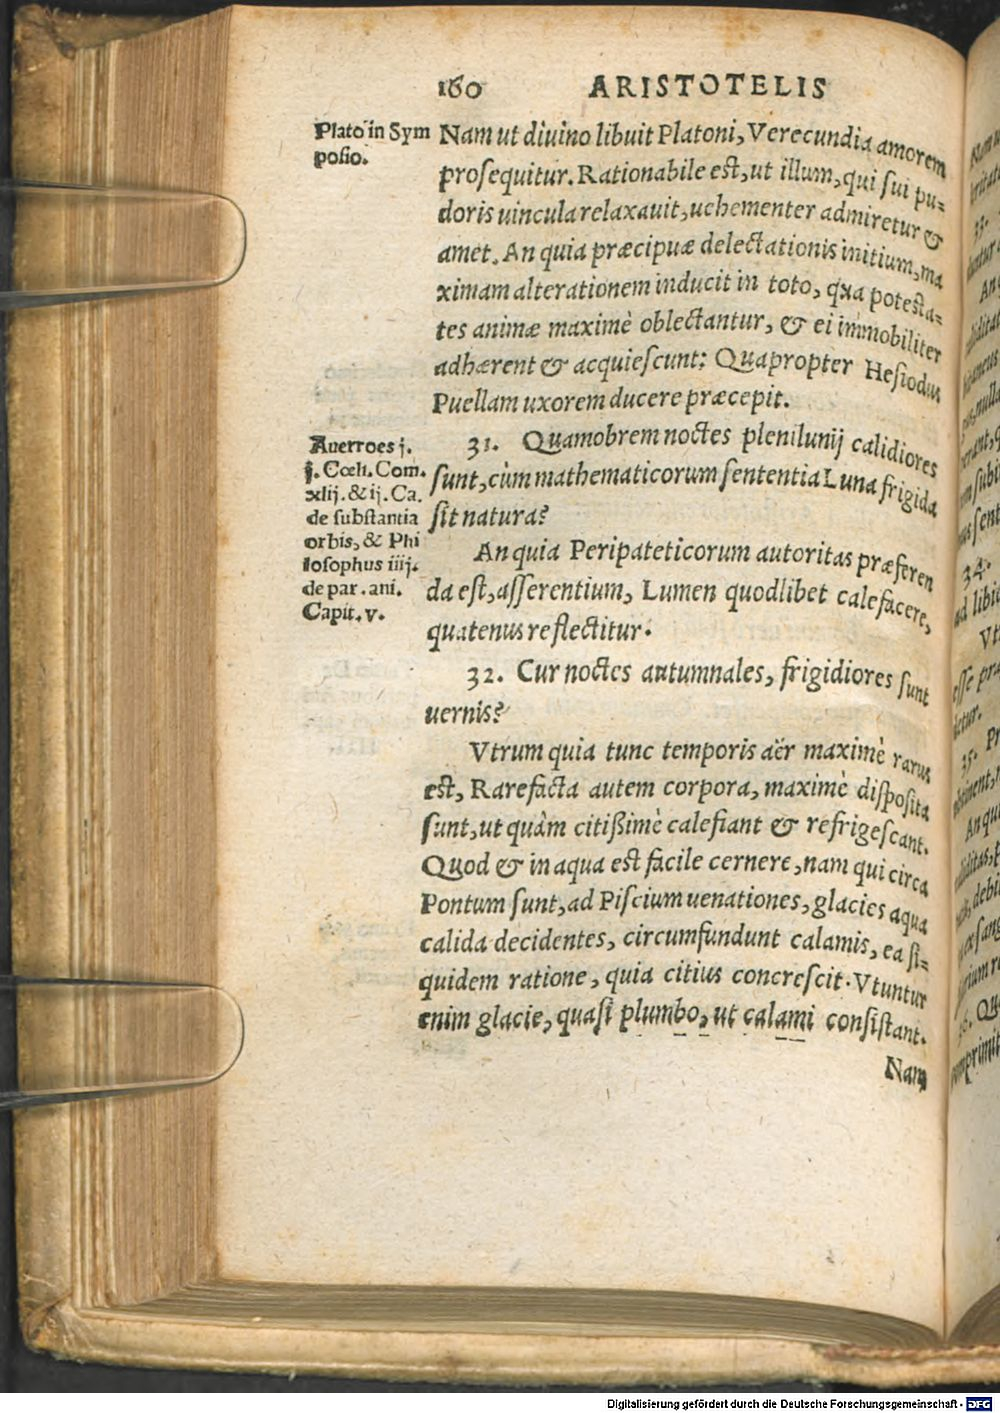 160 ARISTOTELIS
Plato in Sym
posio.
Nam ut diuino libuit Platoni, Verecundia amorem
prosequitur. Rationabile est, ut illum, qui sui pu-
doris uincula relaxauit, uehementer admiretur &
amet. An quia præcipuæ delectationis initium, ma
ximam alterationem inducit in toto, qua potesta-
tes animæ maximè oblectantur, & ei immobiliter
adhærent & acquiescunt: Quapropter Hesiodus
Puellam uxorem ducere præcepit.
Auerroes j.
j. Cœli. Com.
xlij. & ij. Ca.
de substantia
orbis, & Phi
losophus iiij.
de par. ani.
Capit. v.
31. Quamobrem noctes plenilunij calidiores
sunt, cùm mathematicorum sententia Luna frigida
sit natura?
An quia Peripateticorum autoritas præferen
da est, asserentium, Lumen quodlibet calefacere,
quatenus reflectitur.
32. Cur noctes autumnales, frigidiores sunt
uernis?
Vtrum quia tunc temporis aër maximè rarus
est, Rarefacta autem corpora, maximè disposita
sunt, ut quàm citißimè calefiant & refrigescant.
Quod & in aqua est facile cernere, nam qui circa
Pontum sunt, ad Piscium uenationes, glacies aqua
calida decidentes, circumfundunt calamis, ea si-
quidem ratione, quia citius concrescit. Vtuntur
enim glacie, quasi plumbo, ut calami consistant.
Nam
33.
34.
35.
Digitalisierung gefördert durch die Deutsche Forschungsgemeinschaft - DFG